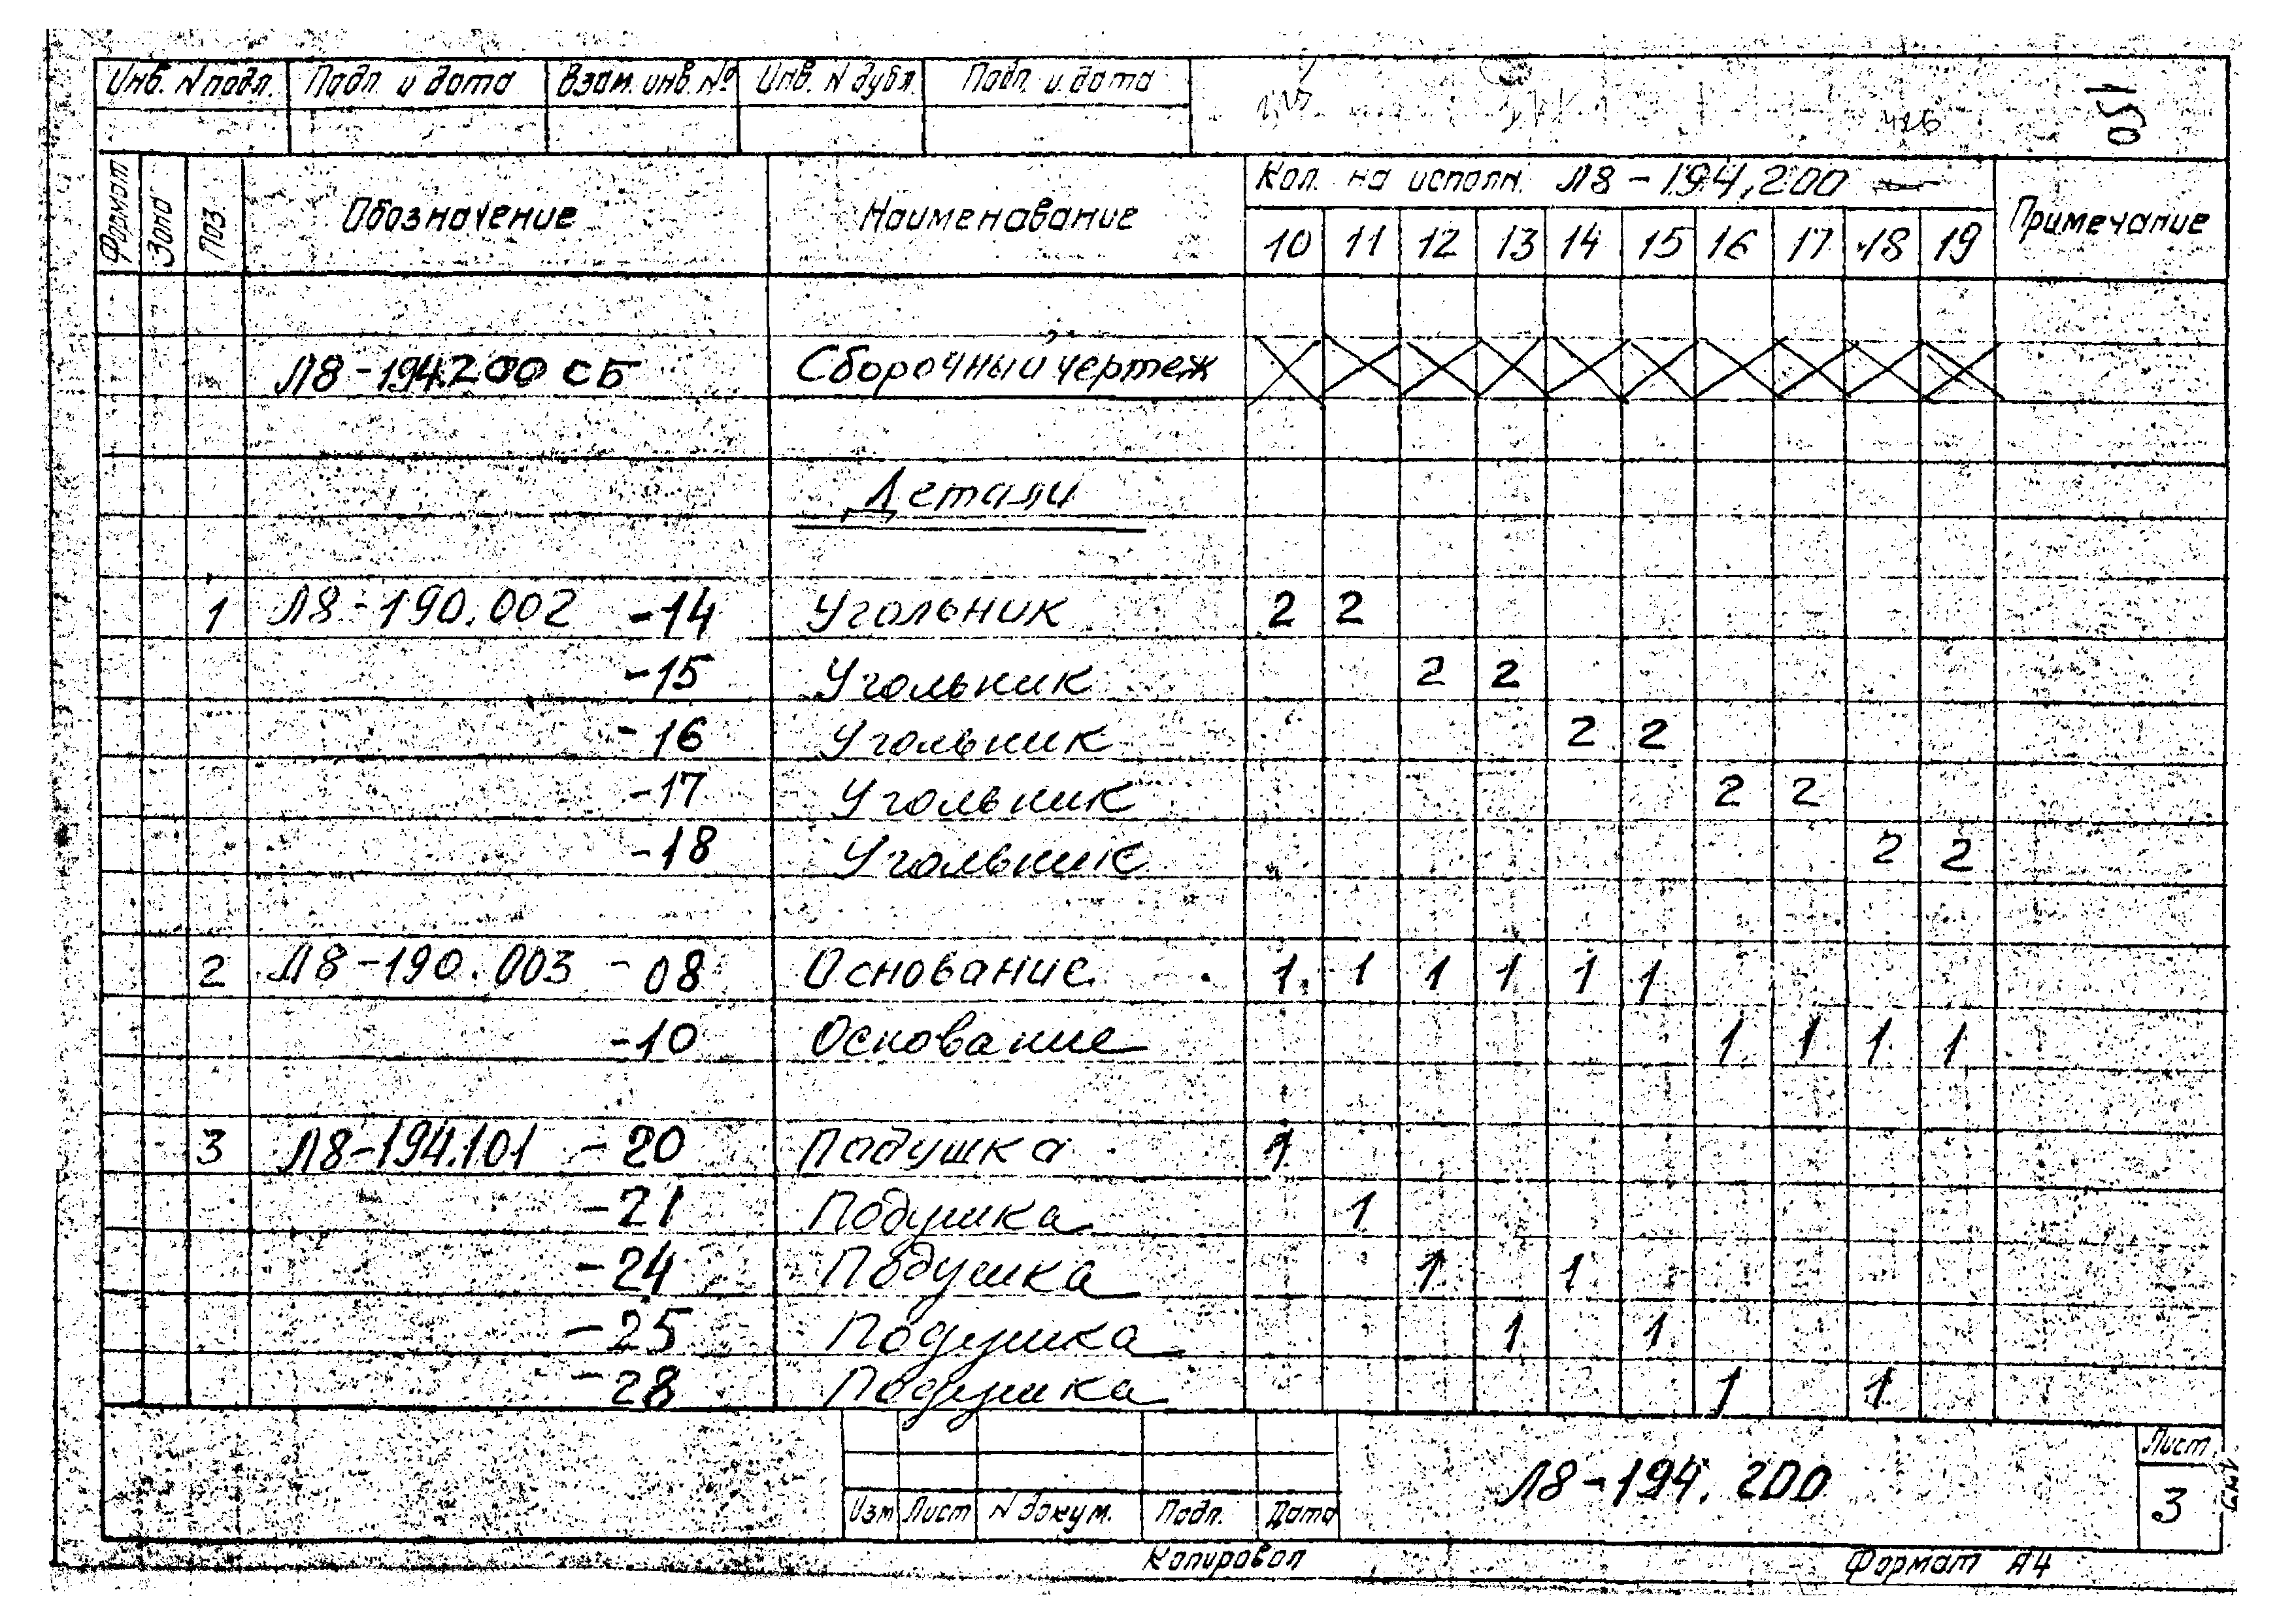 Инв. N подл. Подп. и дата Взам. инв. № Инв. N дубл. Подп. и дата
150
Формат Зона Поз. Обозначение Наименование Кол. на исполн. Л8-194.200 — Примечание
10 11 12 13 14 15 16 17 18 19
Л8-194.200 СБ Сборочный чертеж
Детали
1 Л8-190.002 -14 Угольник 2 2
-15 Угольник 2 2
-16 Угольник 2 2
-17 Угольник 2 2
-18 Угольник 2 2
2 Л8-190.003 -08 Основание 1 1 1 1 1 1
-10 Основание 1 1 1 1
3 Л8-194.101 -20 Подушка 1
-21 Подушка 1
-24 Подушка 1 1
-25 Подушка 1 1
-28 Подушка 1 1
Изм Лист N докум. Подп. Дата
Л8-194.200
Лист
3
Копировал Формат А4